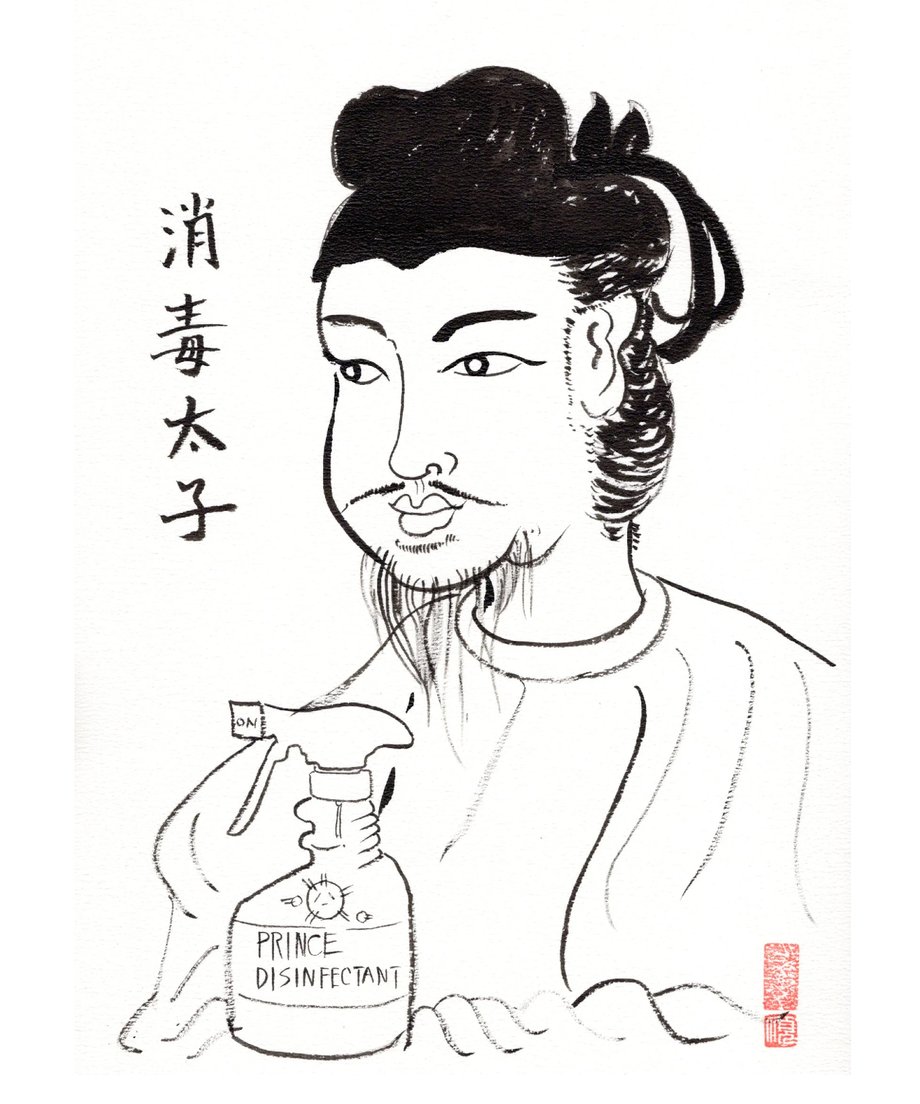 消毒太子
ON
PRINCE
DISINFECTANT